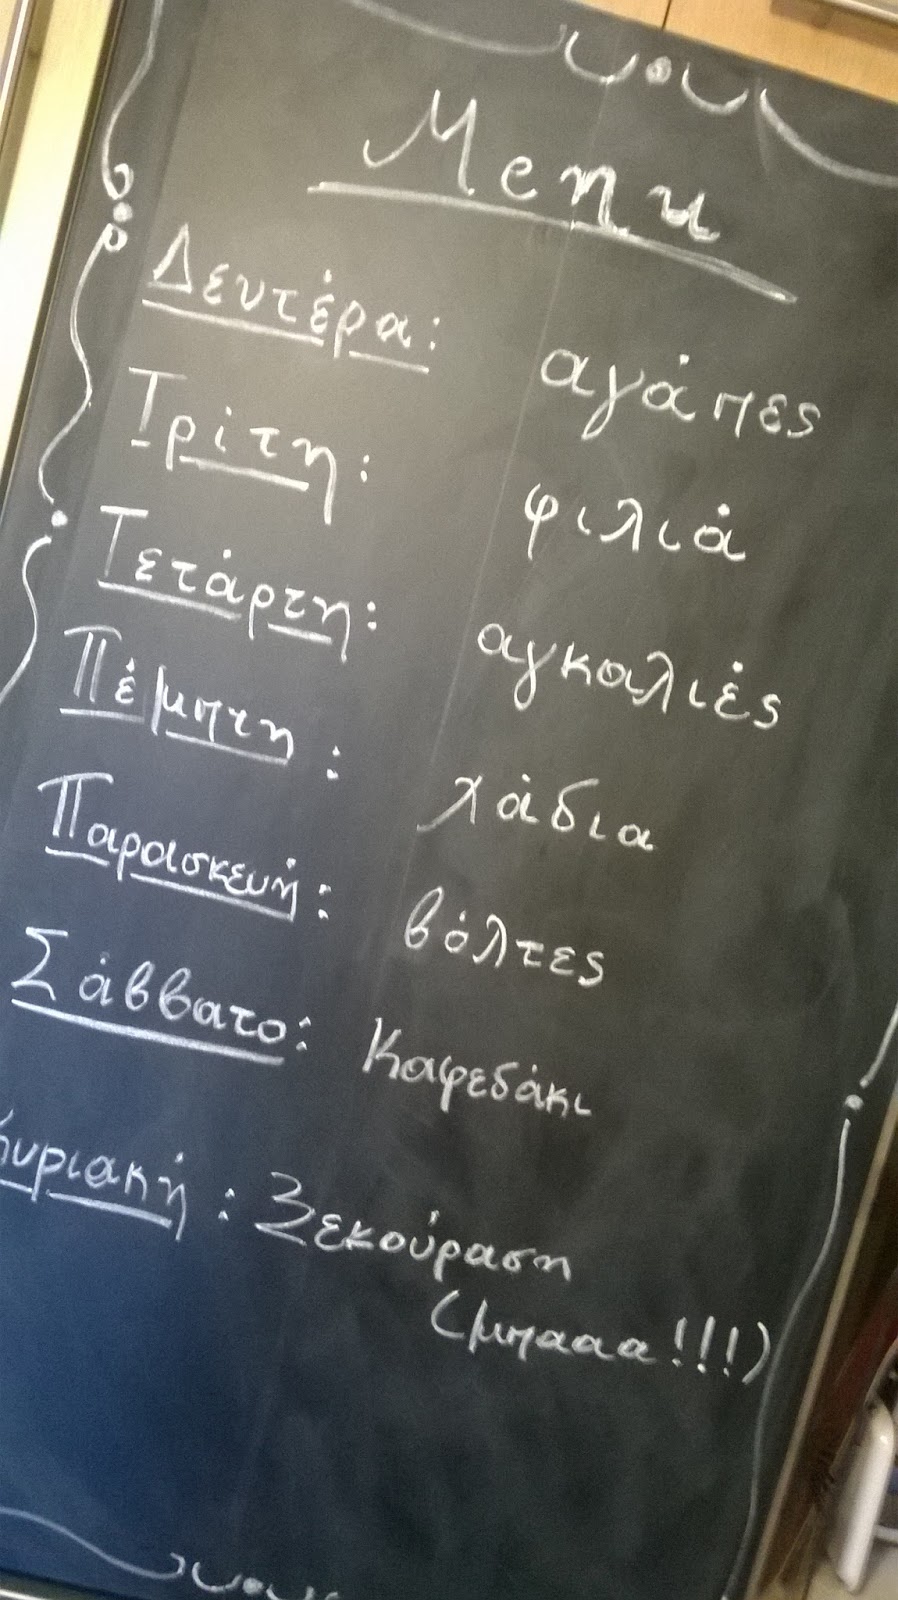 Menu
Δευτέρα: αγάπες
Τρίτη: φιλιά
Τετάρτη: αγκαλιές
Πέμπτη: χάδια
Παρασκευή: βόλτες
Σάββατο: Καφεδάκι
Κυριακή: Ξεκούραση
(μπααα!!!)